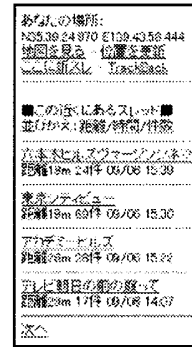 あなたの場所:
N35.39.24.970 E139.43.58.444
地図を見る - 位置を更新
ここに新スレ - TrackBack
■この近くにあるスレッド■
並びかえ: 距離/時間/件数
六本木ヒルズヴァージンシネマ
距離19m 24件 09/06 15:39
東京シティビュー
距離19m 69件 09/06 15:30
アカデミーヒルズ
距離28m 28件 09/06 15:22
テレビ朝日の前の庭って
距離29m 17件 09/06 14:07
次へ